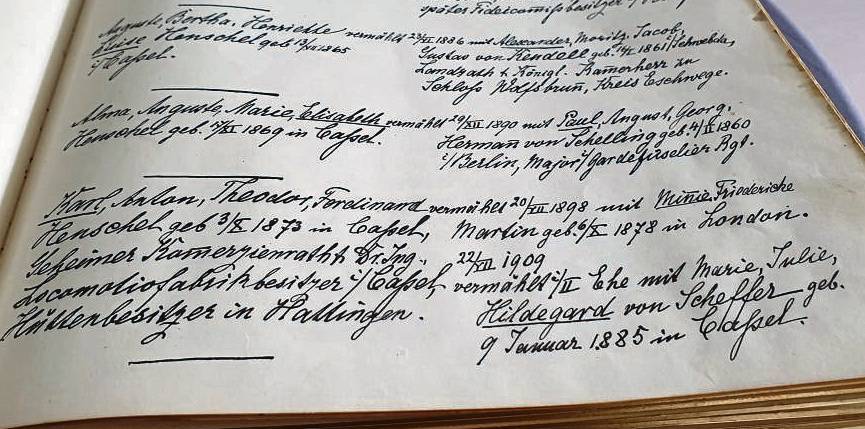 später Fideicomißbesitzer
Auguste, Bertha, Henriette vermählt 1886 mit Alexander, Moritz, Jacob,
Luise Henschel geb. 1865 Gustav von Keudell geb. 1861 i/Schwebda,
i/Cassel. Landrath & Königl. Kamerherr zu
Schloss Wolfsbrun, Kreis Eschwege.
Alma, Auguste, Marie, Elisabeth vermählt 29/XII 1890 mit Paul, August, Georg,
Henschel geb. 1869 in Cassel. Hermann von Schelling geb. 4/II 1860
i/Berlin, Major i/Gardefüselier Rgt.
Karl, Anton, Theodor, Ferdinand vermählt 1898 mit Minie Friederiche
Henschel geb 3/X 1873 in Cassel, Martin geb. 6/X 1878 in London.
Geheimer Kamerzienrath & Dr. Ing., 1909
Locomotiofabrikbesitzer i/Cassel, vermählt i/II Ehe mit Marie, Julie,
Hüttenbesitzer in Hattingen. Hildegard von Scheffer geb.
9 Januar 1885 in Cassel.